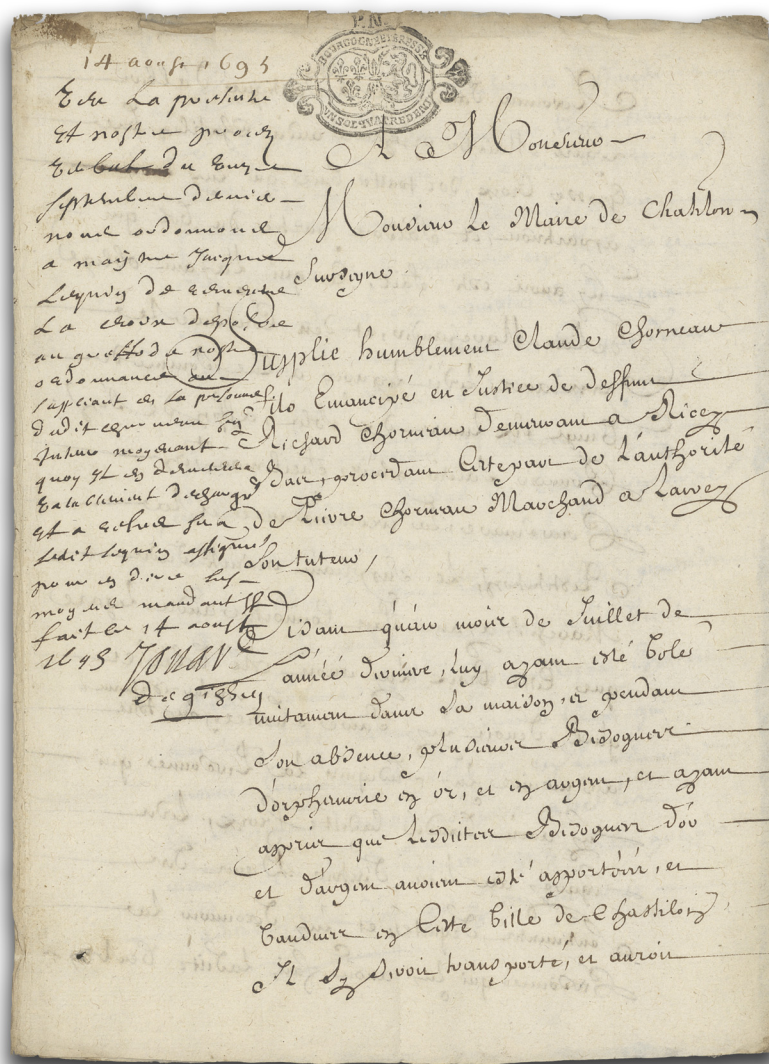 P.N.
BOURGOGNE ET BRESSE
UN SOL PVATRE DEN
14 aoust 1695
Veu La presente
Et nostre proces
Verbal du
septembre dernier
nous ordonnons
a maistre Jacques
Lequin de
La
au greffe de nostre
ordonnance au
suppliant en la personne
dudit
tuteur moyennant
quoy il en demeurera
Valablement deschargé
Et a
Ledit Lequin assigné
pour en dire ses
moyens mandant &
fait ce 14 aoust
1695 Jouard
de gissey
A Monsieur
Monsieur Le Maire de Chastillon
Sur seyne
Supplie humblement Claude Chorneau
fils Emancipé en Justice de deffunt
Richard Chorneau demeurant a Ricey
bas, procedant Certe part de L'authorité
de Pierre Chorneau Marchand a
Son tuteur,
Disant qu'au mois de Juillet de
l'année derniere, luy ayant esté volé
nuitament dans Sa maison, et pendant
Son absence, plusieurs Besognes
d'orphevrerie en or, et en argent, et ayant
appris que Lesdittes Besognes d'or
et d'argent avoient esté apportées, et
Vandues en Cette Ville de Chastillon,
Il Sy Seroit transporté, et auroit